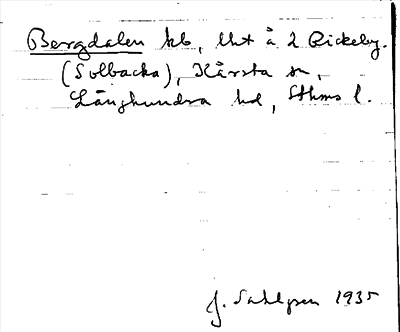 Bergdalen hb, lht å 2 Rickeby.
(Solbacka), Kårsta sn,
Långhundra hd, Sthms l.
J. Sahlgren 1935